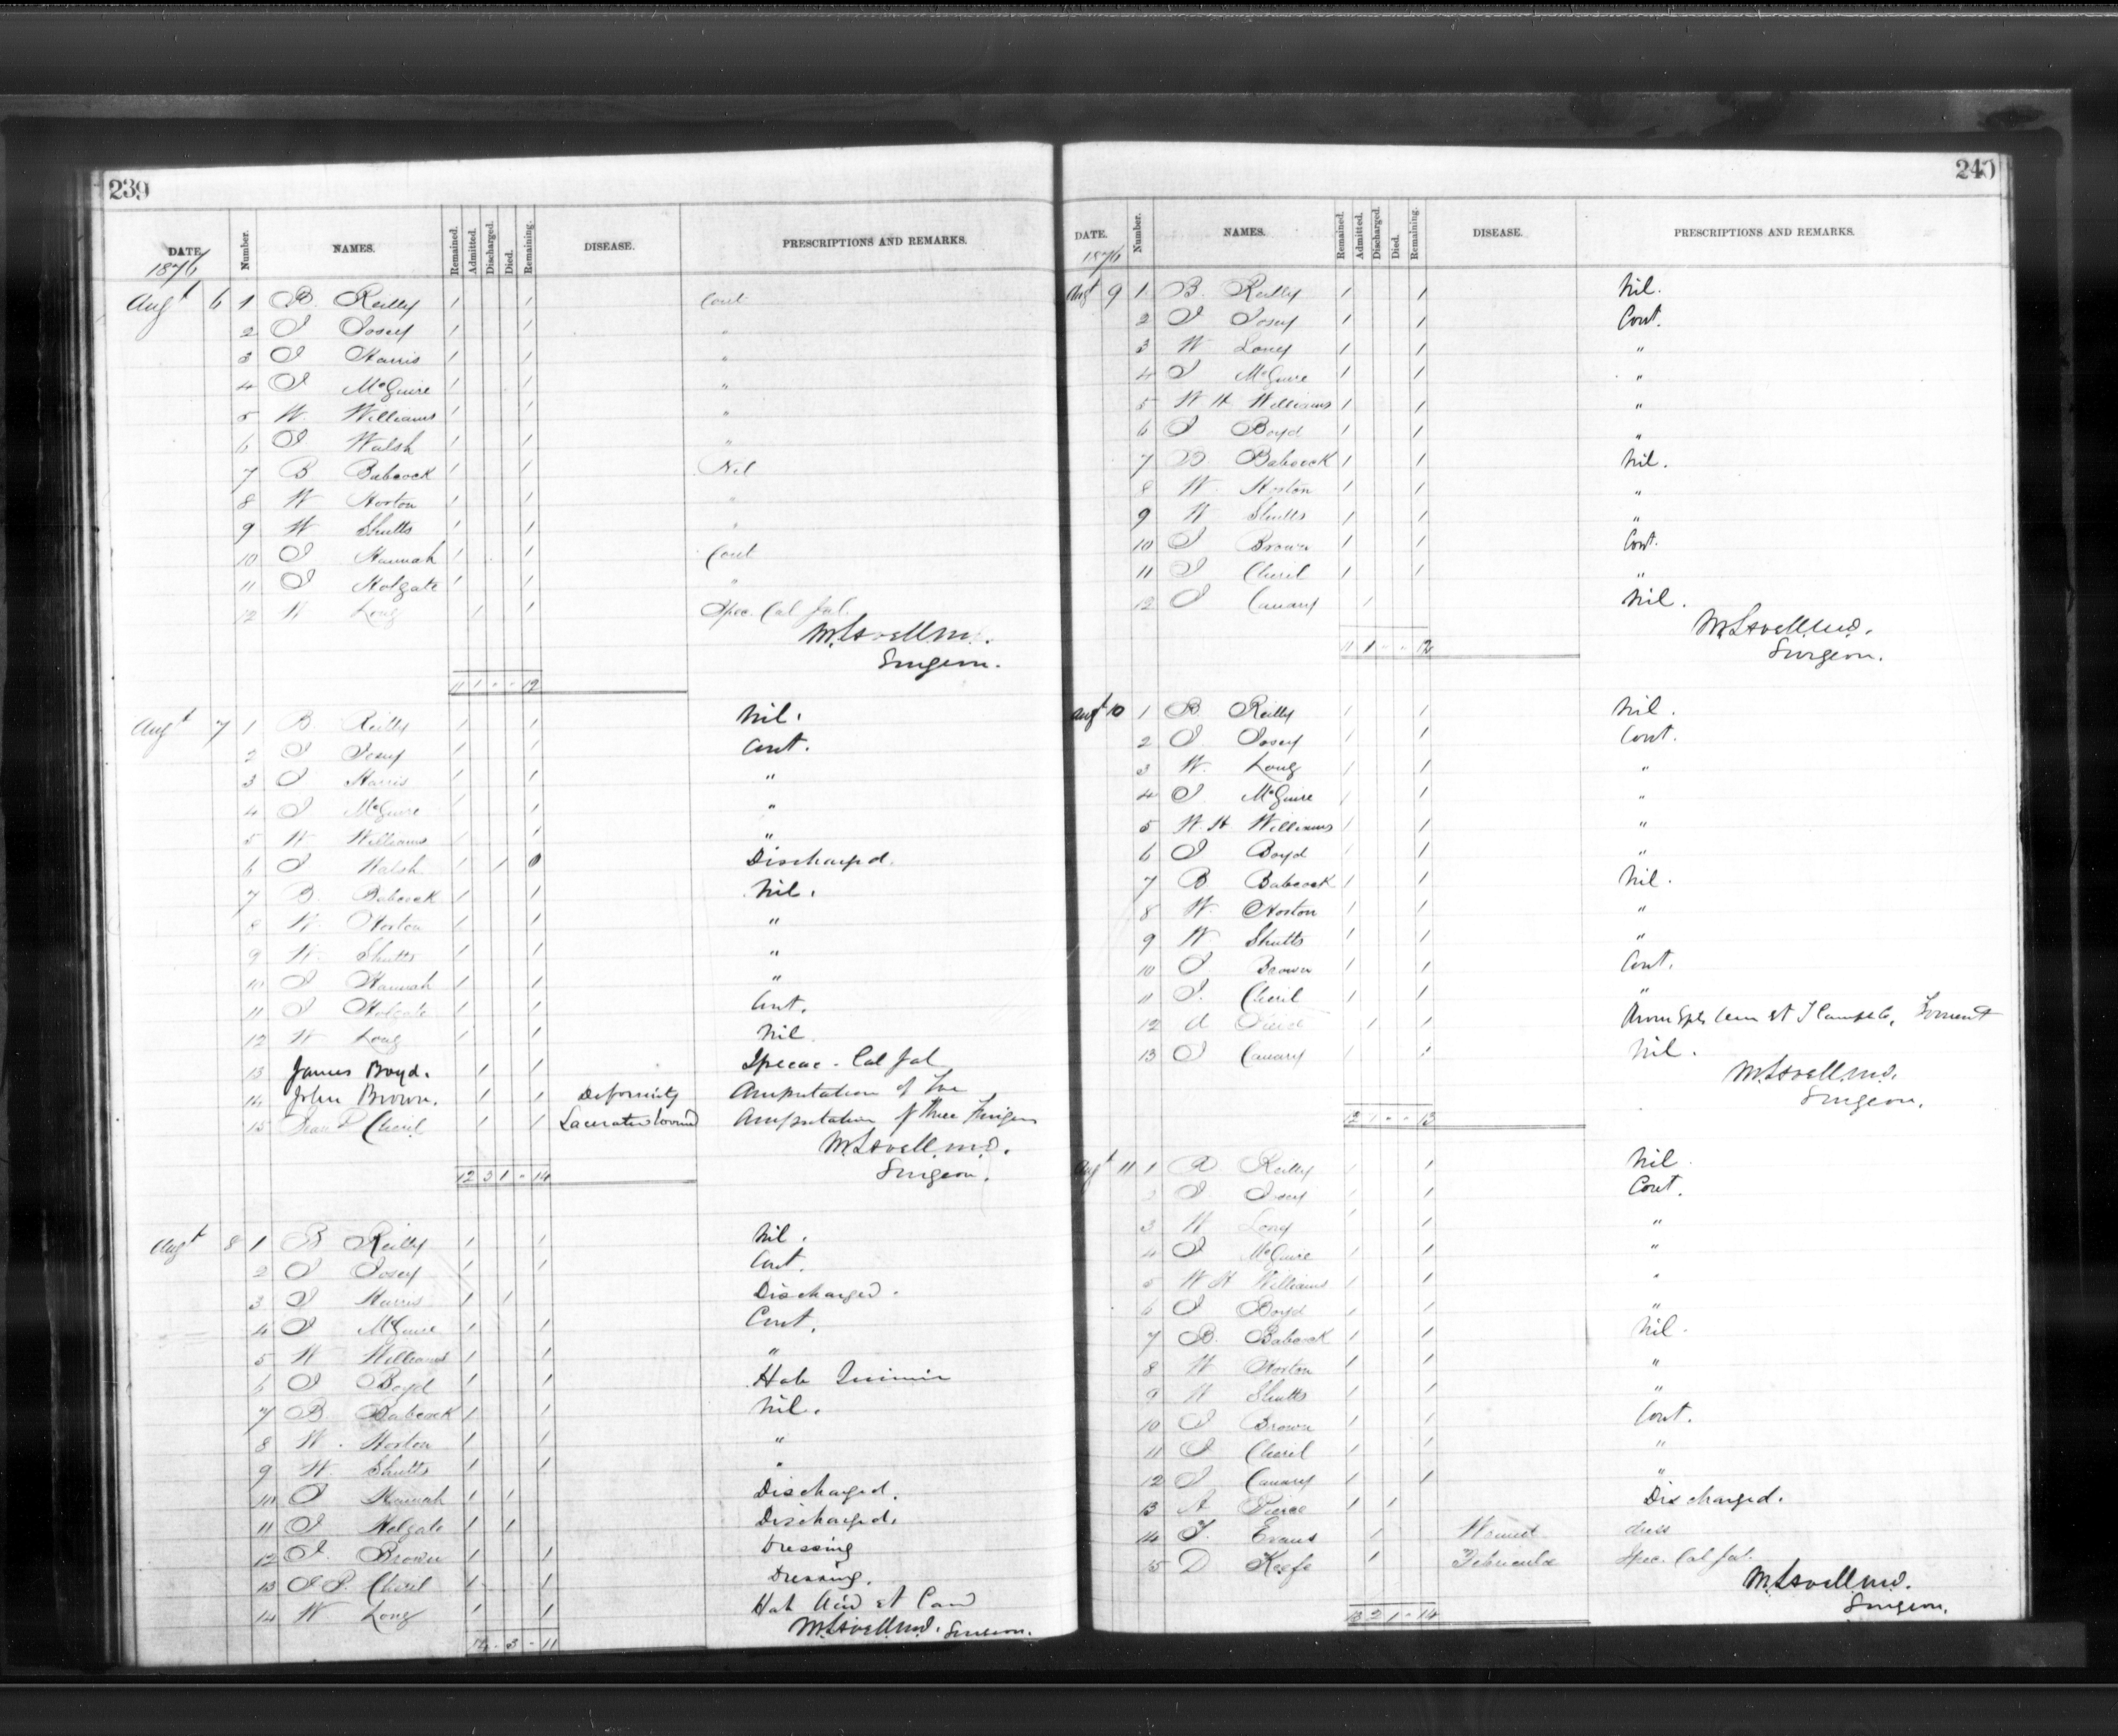 239
DATE. Number. NAMES. Remained. Admitted. Discharged. Died. Remaining. DISEASE. PRESCRIPTIONS AND REMARKS.
1876
Augt 6 1 B. Reilly 1 1 Cont
2 J Josey 1 1 "
3 J Harris 1 1 "
4 J McGuire 1 1 "
5 W. Williams 1 1 "
6 J Walsh 1 1 "
7 B Babcock 1 1 Nil
8 W Horton 1 1 "
9 W Shutts 1 1 "
10 J Hannah 1 1 Cont
11 J Holgate 1 1 "
12 W Long 1 1 Ipec. Cal Jal.
M. Lavell M.D.
Surgeon.
11 1 - - 12
Augt 7 1 B. Reilly 1 1 Nil.
2 J Josey 1 1 Cont.
3 J Harris 1 1 "
4 J McGuire 1 1 "
5 W Williams 1 1 "
6 J Walsh 1 1 0 Discharged.
7 B. Babcock 1 1 Nil.
8 W. Horton 1 1 "
9 W. Shutts 1 1 "
10 J Hannah 1 1 "
11 J Holgate 1 1 Cont.
12 W Long 1 1 Nil
13 James Boyd. 1 1 Ipecac - Cal Jal
14 John Brown. 1 1 Deformity Amputation of Toe
15 Cheril 1 1 Lacerated wound Amputation of three Fingers
M. Lavell M.D.
Surgeon.
12 3 1 - 14
Augt 8 1 B Reilly 1 1 Nil.
2 J Josey 1 1 Cont.
3 J Harris 1 1 Discharged.
4 J McGuire 1 1 Cont.
5 W Williams 1 1 "
6 J Boyd 1 1 Hab Quinin
7 B. Babcock 1 1 Nil.
8 W. Horton 1 1 "
9 W. Shutts 1 1 "
10 J Hannah 1 1 Discharged.
11 J Holgate 1 1 Discharged.
12 J. Brown 1 1 Dressing
13 J P. Cheril 1 1 Dressing.
14 W Long 1 1 Hab
M. Lavell M.D. Surgeon.
14 - 3 - 11
240
DATE. Number. NAMES. Remained. Admitted. Discharged. Died. Remaining. DISEASE. PRESCRIPTIONS AND REMARKS.
1876
Augt 9 1 B. Reilly 1 1 Nil.
2 J Josey 1 1 Cont.
3 W Long 1 1 "
4 J McGuire 1 1 "
5 W H Williams 1 1 "
6 J Boyd 1 1 "
7 B Babcock 1 1 Nil.
8 W. Horton 1 1 "
9 W Shutts 1 1 "
10 J Brown 1 1 Cont.
11 J Cheril 1 1 "
12 J Canary 1 Nil.
M. Lavell M.D.
Surgeon.
11 1 - - 12
Augt 10 1 B. Reilly 1 1 Nil.
2 J Josey 1 1 Cont.
3 W. Long 1 1 "
4 J McGuire 1 1 "
5 W. H Williams 1 1 "
6 J Boyd 1 1 "
7 B Babcock 1 1 Nil.
8 W. Horton 1 1 "
9 W. Shutts 1 1 "
10 J Brown 1 1 Cont.
11 J. Cheril 1 1 "
12 A Pierce 1 1
13 J Canary 1 1 Nil.
M. Lavell M.D.
Surgeon.
12 1 - - 13
Augt 11 1 B. Reilly 1 1 Nil
2 J Josey 1 1 Cont.
3 W Long 1 1 "
4 J McGuire 1 1 "
5 W H Williams 1 1 "
6 J Boyd 1 1 "
7 B. Babcock 1 1 Nil.
8 W Horton 1 1 "
9 W Shutts 1 1 "
10 J Brown 1 1 Cont.
11 J Cheril 1 1 "
12 J Canary 1 1 "
13 A Pierce 1 1 Discharged.
14 J. Evans 1 Wound dress
15 D Keefe 1 Febricula Ipec. Cal Jal.
M. Lavell M.D.
Surgeon.
13 2 1 - 14